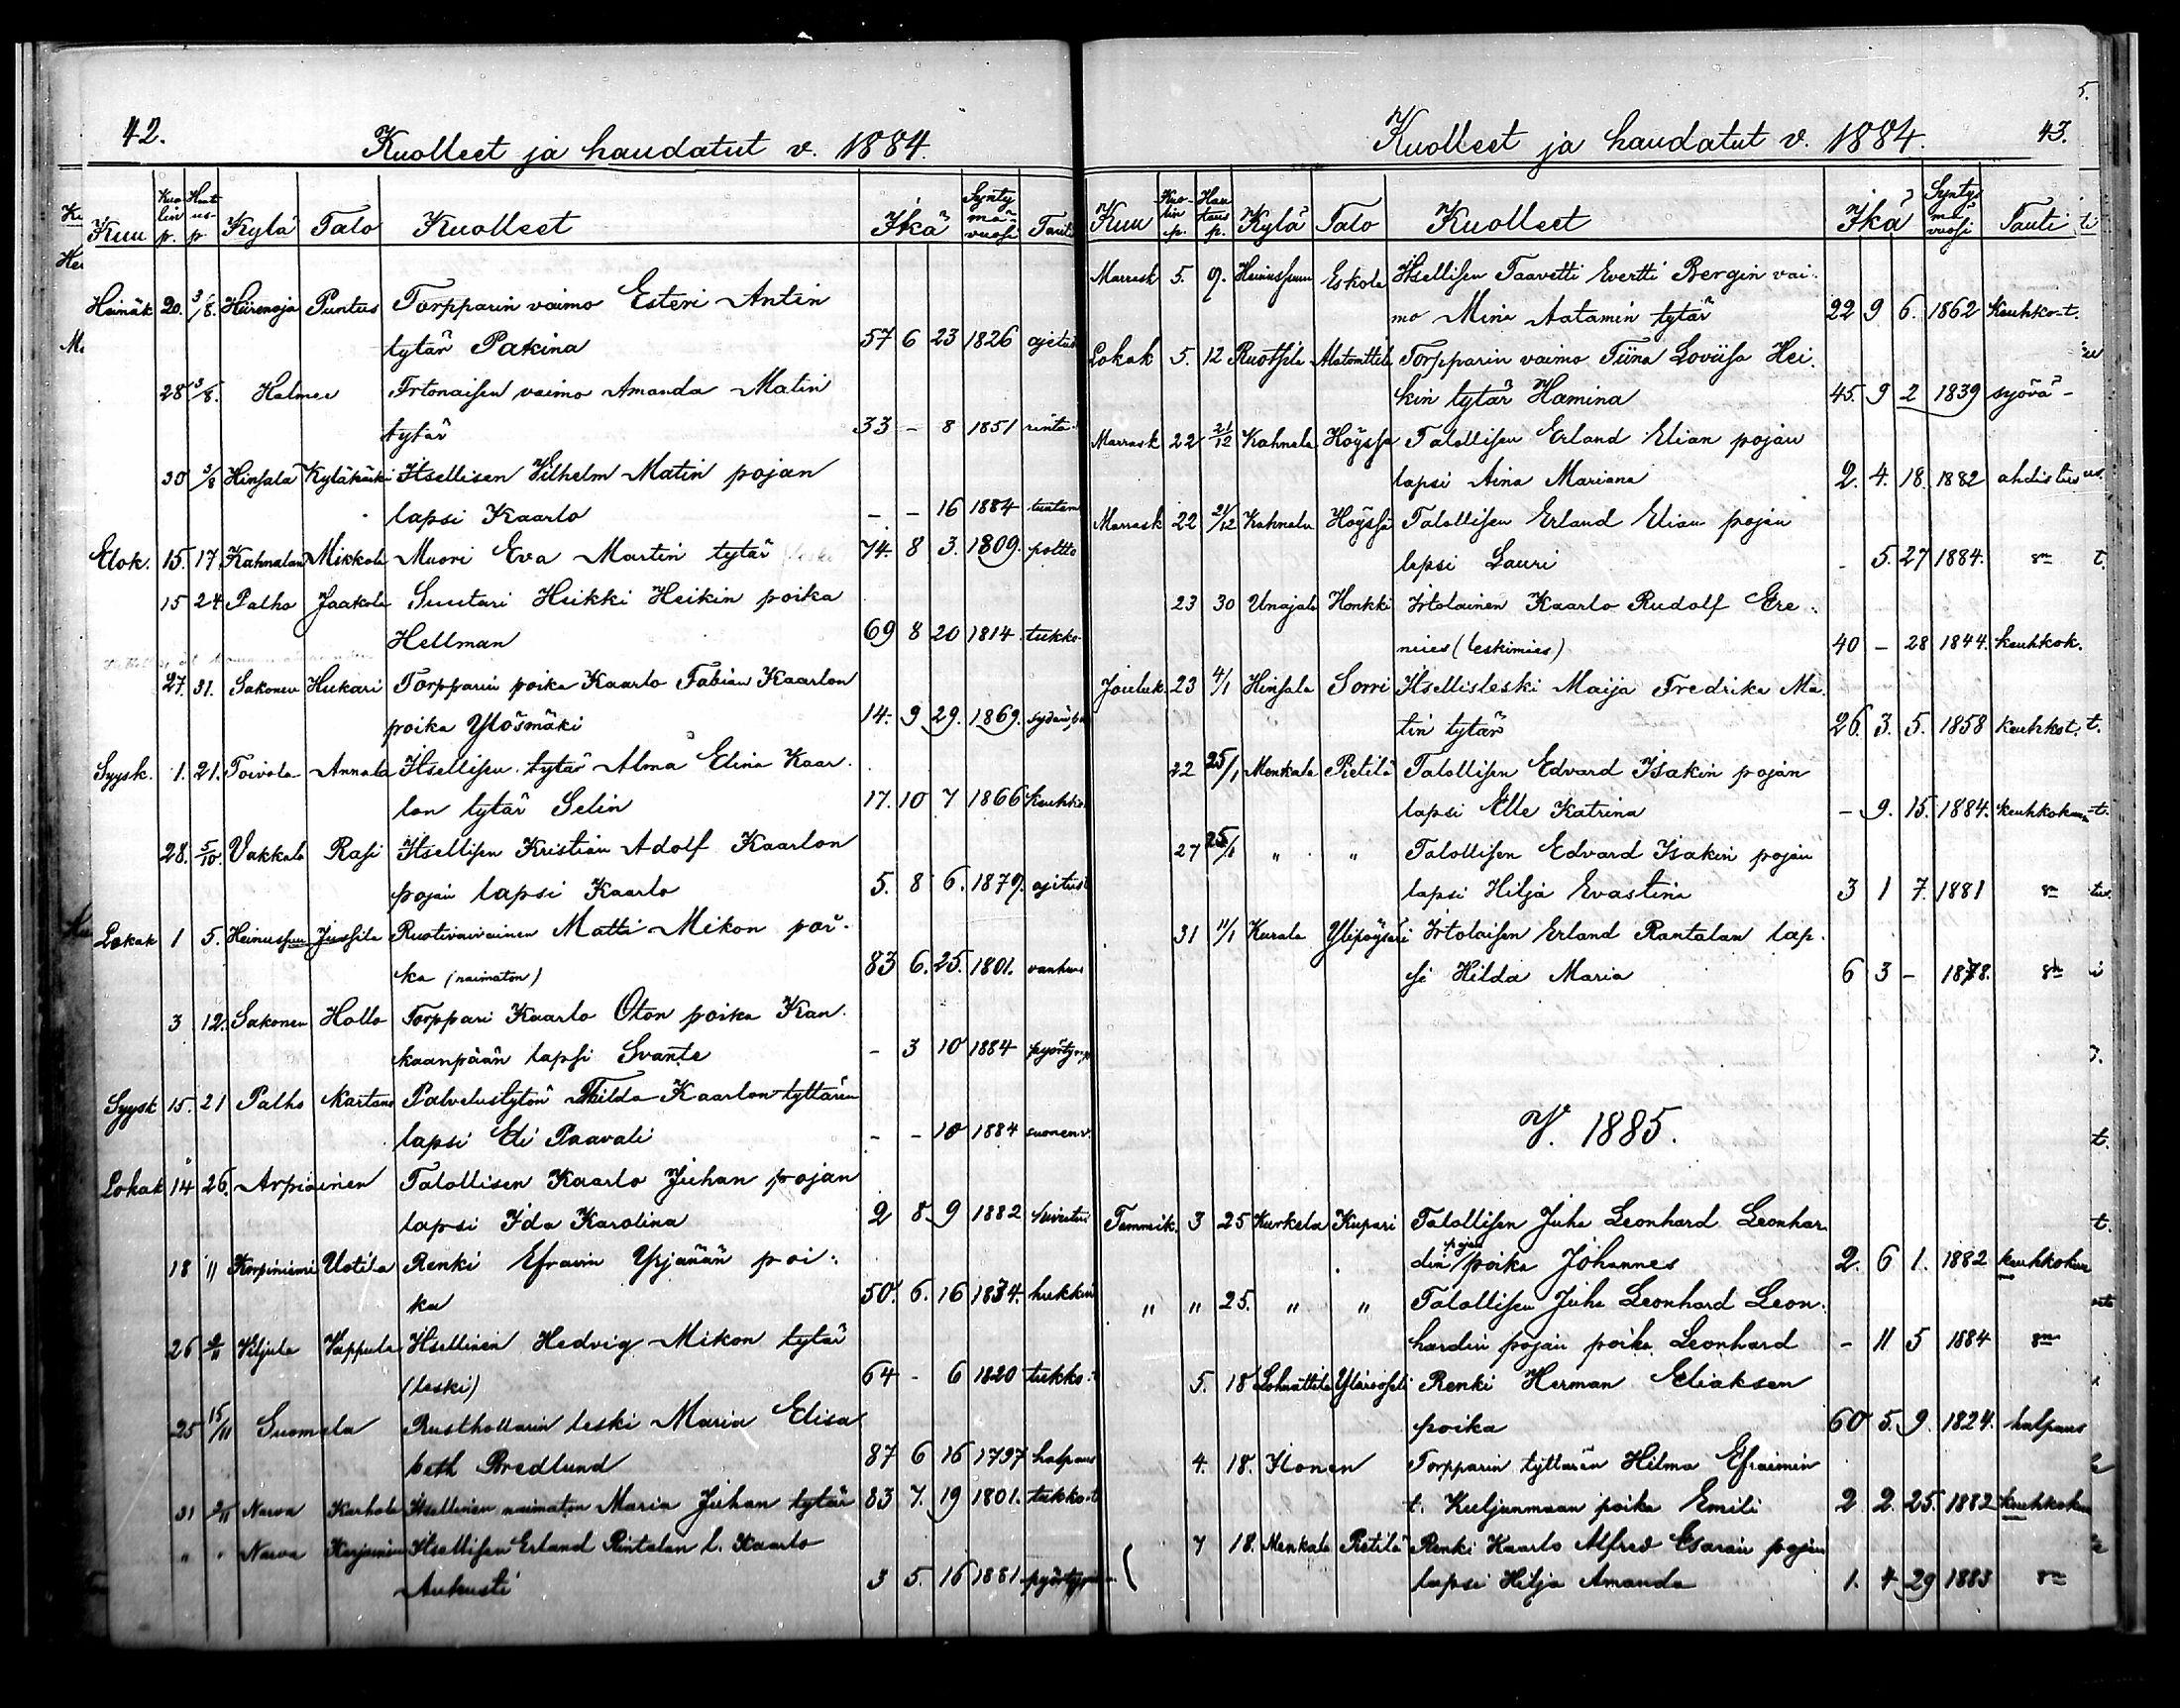 42.
Kuolleet ja haudatut v. 1884.
Kuu Kuolin p. Hautaus- p. Kylä Talo Kuolleet Ikä Syntymä- vuosi Tauti
Heinäk 20. 3/8. Hiirenoja Puntus Torpparin vaimo Esteri Antin
tytär Pakina 57 6 23 1826 ajetus
28 3/8. Halmee Irtonaisen vaimo Amanda Matin
tytär 33 - 8 1851 rinta
30 3/8 Hinsala Kyläkäiki Itsellisen Vilhelm Matin pojan
lapsi Kaarlo - - 16 1884 tuntem
Elok. 15. 17. Kahnalan Mikkola Muori Eva Martin tytär leski 74. 8 3. 1809. poltto
15 24 Palho Jaakola Suutari Heikki Heikin poika
Hellman 69 8 20 1814 tukko-
27. 31. Sakonen Hukari Torpparin poika Kaarlo Fabian Kaarlon
poika Ylösmäki 14. 9 29. 1869.
Syysk. 1. 21. Toivola Annala Itsellisen tytär Alma Elina Kaar-
lon tytär Selin 17. 10 7 1866 keuhko
28. 5/10. Vakkala Rasi Itsellisen Kristian Adolf Kaarlon
pojan lapsi Kaarlo 5. 8 6. 1879. ajetus
Lokak 1 5. Heinussuu Jussila Ruotivaivainen Matti Mikon poi-
ka (naimaton) 83 6. 25. 1801. vanhuus
3 12. Sakonen Hollo Torppari Kaarlo Oton poika Kan-
kaanpään lapsi Svante - 3 10 1884
Syysk 15. 21 Palho Kartano Palvelustytön Thilda Kaarlon tyttären
lapsi Eli Paavali - - 10 1884 suonenv.
Lokak 14 26. Arpiainen Talollisen Kaarlo Juhan pojan
lapsi Ida Karolina 2 8 9 1882
18 " Korpiniemi Uotila Renki Efraim Yrjänän poi-
ka 50. 6. 16 1834. hukkui
26 Viljula Vappula Itsellinen Hedvig Mikon tytär
(leski) 64 - 6 1820 tukko-t
25 15/11 Suomela Rusthollarin leski Maria Elisa
beth Bredlund 87 6 16 1797 halpaus
31 Narva Karhola Itsellinen naimaton Maria Juhan tytär 83 7. 19 1801. tukko-t
" " Narva Itsellisen Erland Rintalan l. Kaarlo
Aukusti 3 5. 16 1881
Kuolleet ja haudatut v. 1884. 43.
Kuu Kuo- lin p. Hau taus p. Kylä Talo Kuolleet Ikä Synty mä vuosi Tauti
Marrask 5. 9. Heinussuun Eskola Itsellisen Taavetti Evertti Bergin vai-
mo Mina Aatamin tytär 22 9 6. 1862 Keuhko-t.
Lokak 5. 12 Ruotsila Alatonttila Torpparin vaimo Tiina Loviisa Hei-
kin tytär Hamina 45. 9 2 1839 syövä-
Marrask 22 21/12 Kahnala Höyssä Talollisen Erland Elian pojan
lapsi Aina Mariana 2. 4. 18. 1882 ahdistus
Marrask 22 21/12 Kahnala Höyssä Talollisen Erland Elian pojan
lapsi Lauri - 5. 27 1884. sn
23 30 Unajala Honkki Irtolainen Kaarlo Rudolf Ere-
nies (leskimies) 40 - 28 1844. keuhkok.
Jouluk. 23 4/1 Hinsala Sorri Itsellisleski Maija Fredrika Ma-
tin tytär 26. 3. 5. 1858 keuhkot.
22 25/1 Menkala Pietilä Talollisen Edvard Isakin pojan
lapsi Elle Katrina - 9. 15. 1884.
27 25/1 " " Talollisen Edvard Isakin pojan
lapsi Hilja Evastina 3 1 7. 1881 sn
31 11/1 Kurala Ylipöysäri Irtolaisen Erland Rantalan lap-
si Hilda Maria 6 3 - 1878. sn
V. 1885.
Tammik. 3 25 Kurkela Kupari Talollisen Juha Leonhard Leonhar-
din pojan poika Johannes 2. 6 1. 1882
" " 25. " " Talollisen Juha Leonhard Leon-
hardin pojan poika Leonhard - 11 5 1884 sn
5. 18 Lohnättilä Renki Herman Eliaksen
poika 60 5. 9. 1824. halpaus
4. 18. Ilonen Torpparin tyttären Hilma Efraimin
t. Kuljunmaan poika Emili 2. 2. 25. 1882
7 18. Menkala Pietilä Renki Kaarlo Alfred Esaran pojan
lapsi Hilja Amanda 1. 4 29 1883 sn